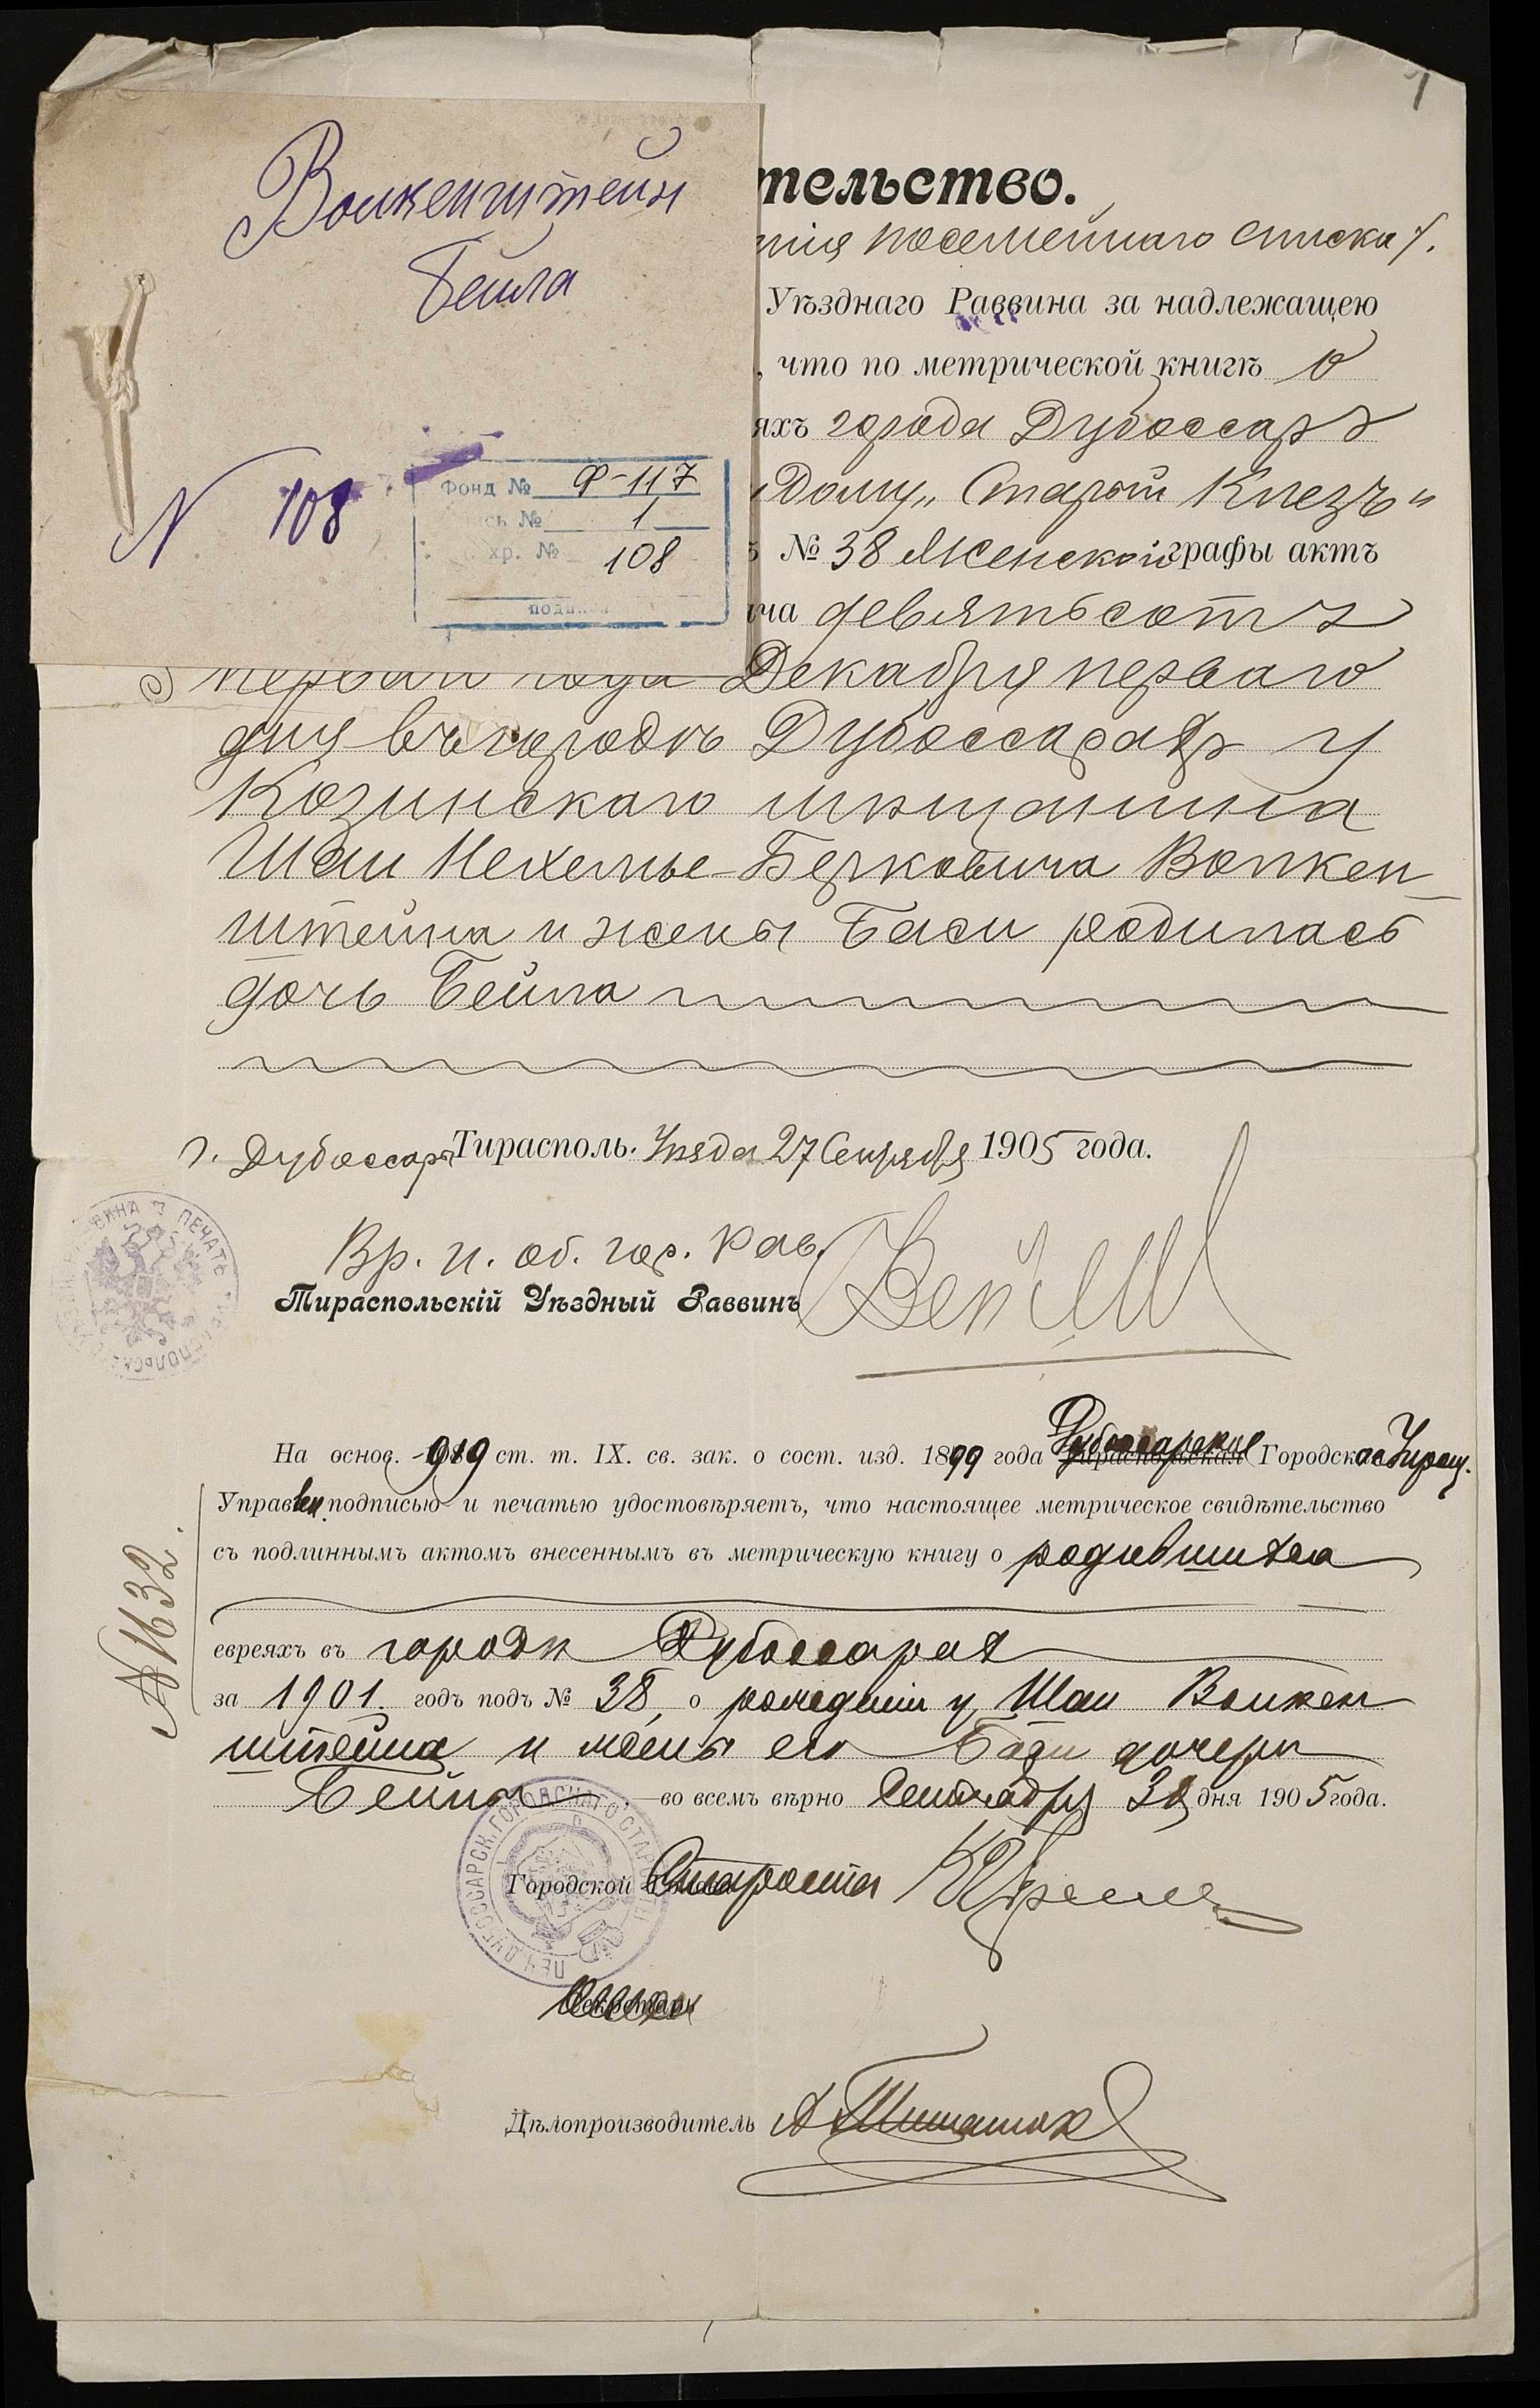 1
Волкенштейн
Бейла
N 108
Фонд № Ф-117
сь № 1
хр. № 108
тельство.
посемейнаго списка).
Уѣзднаго Раввина за надлежащею
, что по метрической книгѣ о
яхъ города Дубоссаръ
Дому „Старый Клезъ“
№ 38 Женской графы актъ
ча девятьсотъ
перваго года Декабря перваго
дня въ городѣ Дубоссарахъ у
Козинскаго мѣщанина
Шаи Нехемье-Берковича Волкен-
штейна и жены Баси родилась
дочь Бейла
г. Дубоссары Тирасполь. Уѣзда 27 Сентября 1905 года.
Вр. и. об. гор. Рав.
Тираспольскій Уѣздный Раввинъ
На основ. 919 ст. т. IX. св. зак. о сост. изд. 1899 года Дубоссарское Городское Упрощ.
Управлен. подписью и печатью удостовѣряетъ, что настоящее метрическое свидѣтельство
съ подлиннымъ актомъ внесеннымъ въ метрическую книгу о родившихся
евреяхъ въ городѣ Дубоссарах
за 1901 годъ подъ № 38, о рожденіи у Шаи Волкен
штейна и жены его Баси дочери
Бейла во всемъ вѣрно Сентября 30 дня 1905 года.
№ 1632.
ПЕЧ. ДУБОССАРСК. ГОРОДСКАГО СТАРОСТЫ
Городской Староста
Дѣлопроизводитель